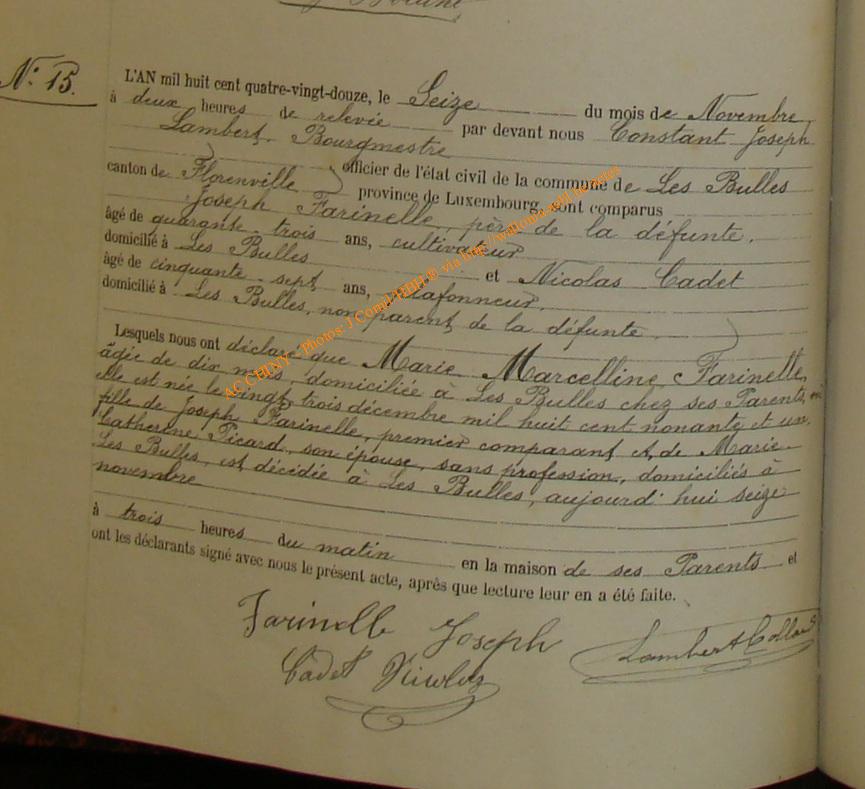 Nº 15.
L'AN mil huit cent quatre-vingt-douze, le Seize du mois de Novembre,
à deux heures de relevée par devant nous Constant Joseph
Lambert, Bourgmestre
officier de l'état civil de la commune de Les Bulles
canton de Florenville province de Luxembourg, sont comparus
Joseph Farinelle, père de la défunte,
âgé de quarante trois ans, cultivateur
domicilié à Les Bulles et Nicolas Cadet
âgé de cinquante sept ans, plafonneur,
domicilié à Les Bulles, non parent de la défunte.
Lesquels nous ont déclaré que Marie Marcelline Farinelle,
âgée de dix mois, domiciliée à Les Bulles chez ses Parents, où
elle est née le vingt trois décembre mil huit cent nonante et un,
fille de Joseph Farinelle, premier comparant et de Marie
Catherine Picard, son épouse, sans profession, domiciliés à
Les Bulles, est décédée à Les Bulles, aujourd'hui seize
novembre
à trois heures du matin en la maison de ses Parents et
ont les déclarants signé avec nous le présent acte, après que lecture leur en a été faite.
Farinelle Joseph
Lambert Collard
Cadet Nicolas
AC CHINY - Photos: J Comil HBH © via http://wallonica